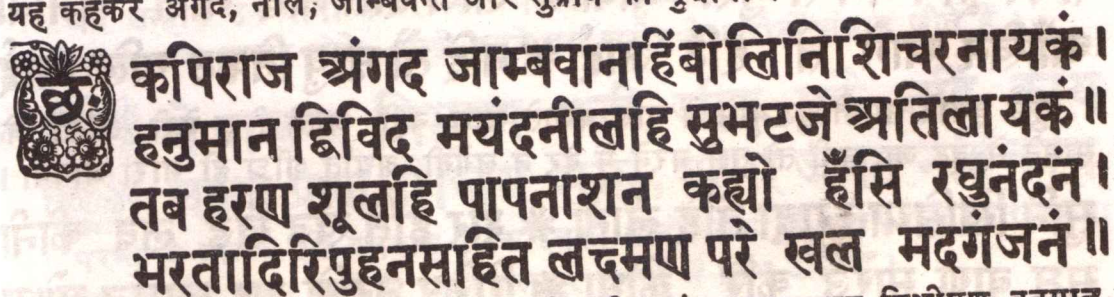 यह कहकर अंगद, नील, जाम्बवन्त और
छं.
कपिराज अंगद जाम्बवानहिंबोलिनिशिचरनायकं।
हनुमान द्विविद मयंदनीलहि सुभटजे अतिलायकं॥
तब हरण शूलहि पापनाशन कह्यो हँसि रघुनंदनं।
भरतादिरिपुहनसहित लक्ष्मण परे खल मदगंजनं॥